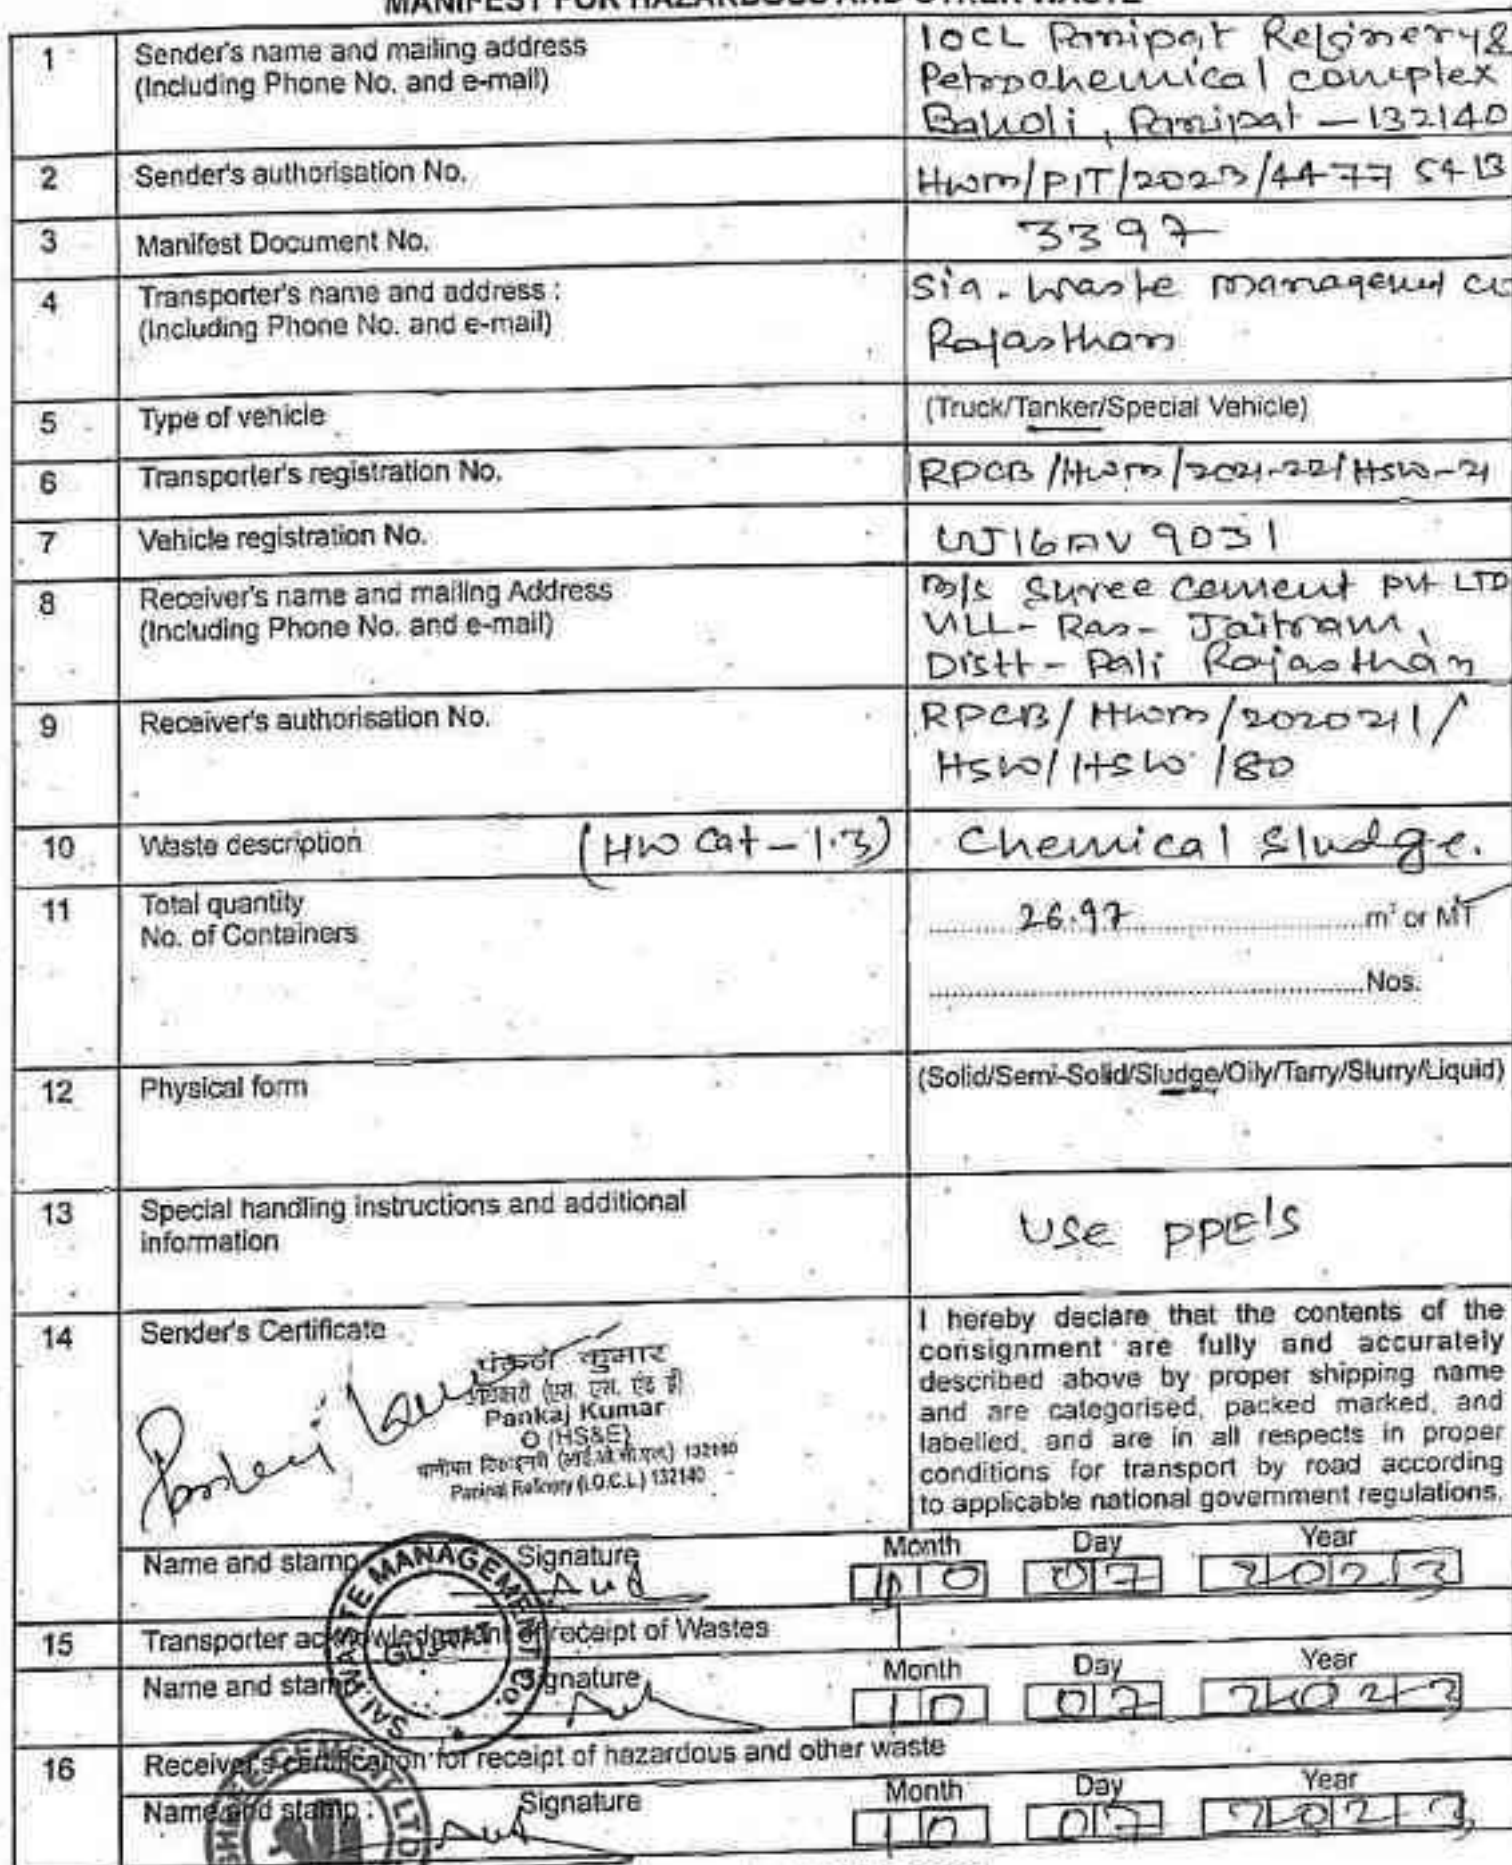 MANIFEST FOR HAZARDOUS AND OTHER WASTE
1 Sender's name and mailing address
(Including Phone No. and e-mail)
IOCL Panipat Refinery &
Petrochemical complex
Baholi, Panipat - 132140
2 Sender's authorisation No. HWM/PIT/2023/4477 5413
3 Manifest Document No. 3397
4 Transporter's name and address :
(Including Phone No. and e-mail)
Waste management co
Rajasthan
5 Type of vehicle (Truck/Tanker/Special Vehicle)
6 Transporter's registration No. RPCB/HWM/2021-22/HSW-21
7 Vehicle registration No. 16AV 9031
8 Receiver's name and mailing Address
(Including Phone No. and e-mail)
M/s Shree Cement Pvt LTD
VILL- Ras- Jaitram,
Distt- Pali Rajasthan
9 Receiver's authorisation No. RPCB/HWM/2020211/
HSW/HSW/80
10 Waste description (HW Cat-1.3) Chemical Sludge.
11 Total quantity 26.97 m³ or MT
No. of Containers Nos.
12 Physical form (Solid/Semi-Solid/Sludge/Oily/Tarry/Slurry/Liquid)
13 Special handling instructions and additional
information
USE PPE'S
14 Sender's Certificate
Pankaj Kumar
पंकज कुमार
अधिकारी (एस. एस. एंड ई)
Pankaj Kumar
O (HS&E)
पानीपत रिफाइनरी (आई.ओ.सी.एल.) 132140
Panipat Refinery (I.O.C.L.) 132140
I hereby declare that the contents of the
consignment are fully and accurately
described above by proper shipping name
and are categorised, packed marked, and
labelled, and are in all respects in proper
conditions for transport by road according
to applicable national government regulations.
Name and stamp Signature Month Day Year
10 07 2023
SAI WASTE MANAGEMENT CO.
GUJRAT
15 Transporter acknowledgment of receipt of Wastes
Name and stamp Signature Month Day Year
10 07 2023
16 Receiver's certification for receipt of hazardous and other waste
Name and stamp : Signature Month Day Year
10 07 2023
SHREE CEMENT LTD